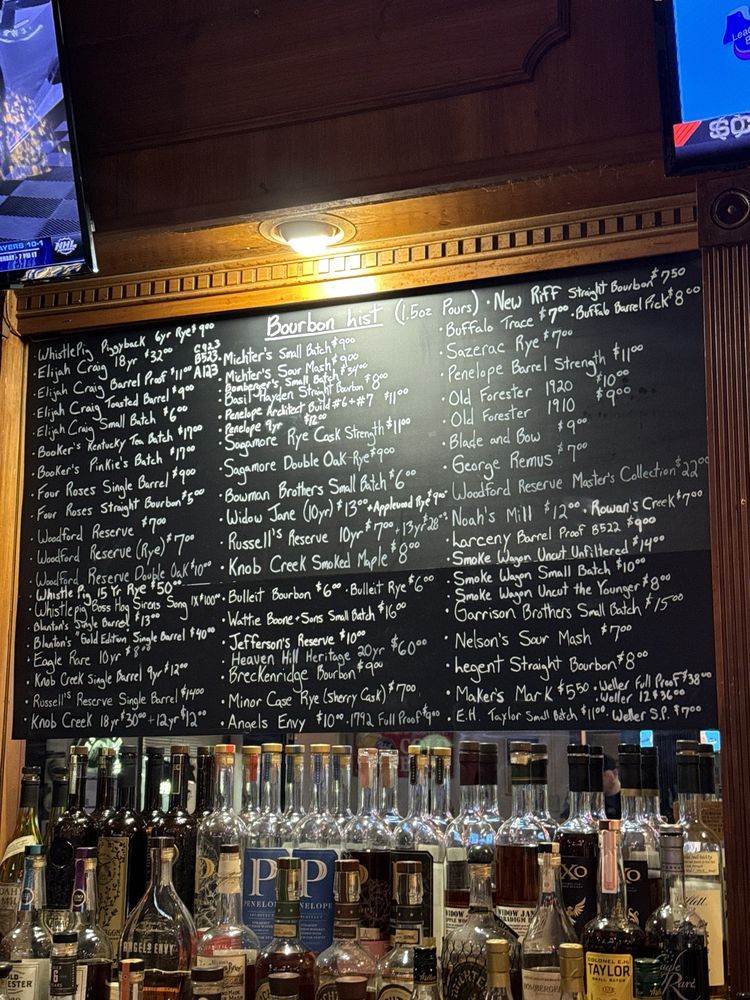 Bourbon List (1.5oz Pours)
· WhistlePig Piggyback 6yr Rye $9.00
· Elijah Craig 18yr $32.00
· Elijah Craig Barrel Proof $11.00 C923 B523 A123
· Elijah Craig Toasted Barrel $9.00
· Elijah Craig Small Batch $6.00
· Booker's Kentucky Tea Batch $17.00
· Booker's Pinkie's Batch $17.00
· Four Roses Single Barrel $9.00
· Four Roses Straight Bourbon $5.00
· Woodford Reserve $7.00
· Woodford Reserve (Rye) $7.00
· Woodford Reserve Double Oak $10.00
· Whistle Pig 15 Yr Rye $50.00
· Whistlepig Boss Hog Sirens Song 1x $100.00
· Blanton's Single Barrel $13.00
· Blanton's "Gold Edition" Single Barrel $40.00
· Eagle Rare 10yr $8.00
· Knob Creek Single Barrel 9yr $12.00
· Russell's Reserve Single Barrel $14.00
· Knob Creek 18yr $30.00 + 12yr $12.00
· Michter's Small Batch $9.00
· Michter's Sour Mash $9.00
· Bomberger's Small Batch $34.00
· Basil Hayden Straight Bourbon $8.00
· Penelope Architect Build #6 + #7 $11.00
· Penelope 9yr $12.00
· Sagamore Rye Cask Strength $11.00
· Sagamore Double Oak Rye $9.00
· Bowman Brothers Small Batch $6.00
· Widow Jane (10yr) $13.00 + Applewood Rye $9.00
· Russell's Reserve 10yr $7.00 + 13yr $28.00
· Knob Creek Smoked Maple $8.00
· Bulleit Bourbon $6.00 · Bulleit Rye $6.00
· Wattie Boone + Sons Small Batch $16.00
· Jefferson's Reserve $10.00
· Heaven Hill Heritage 20yr $60.00
· Breckenridge Bourbon $9.00
· Minor Case Rye (Sherry Cask) $7.00
· Angels Envy $10.00 · 1792 Full Proof $9.00
· New Riff Straight Bourbon $7.50
· Buffalo Trace $7.00 · Buffalo Barrel Pick $8.00
· Sazerac Rye $7.00
· Penelope Barrel Strength $11.00
· Old Forester 1920 $10.00
· Old Forester 1910 $9.00
· Blade and Bow $9.00
· George Remus $7.00
· Woodford Reserve Master's Collection $22.00
· Noah's Mill $12.00 · Rowan's Creek $7.00
· Larceny Barrel Proof B522 $9.00
· Smoke Wagon Uncut Unfiltered $14.00
· Smoke Wagon Small Batch $10.00
· Smoke Wagon Uncut the Younger $8.00
· Garrison Brothers Small Batch $15.00
· Nelson's Sour Mash $7.00
· Legent Straight Bourbon $8.00
· Maker's Mark $5.50 · Weller Full Proof $38.00
· Weller 12 $36.00
· E.H. Taylor Small Batch $11.00 · Weller S.P. $7.00
NHL
P
PENELOPE
P
ANGELS ENVY
WIDOW JANE
XO
COLONEL E.H.
TAYLOR
SMALL BATCH
BOMBERGER